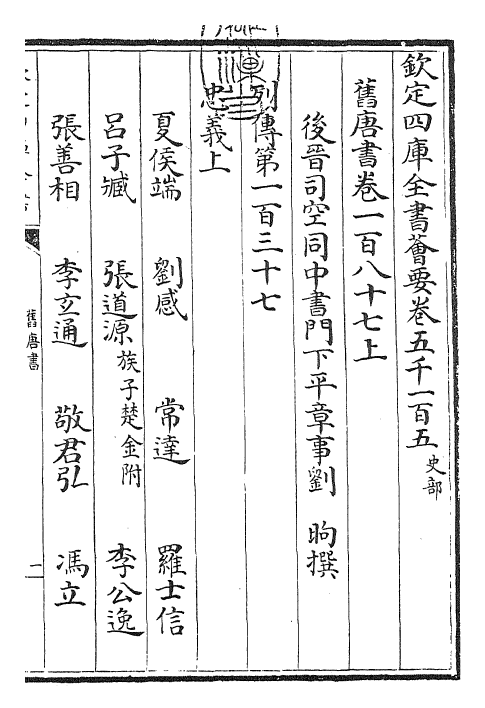 欽定四庫全書薈要卷五千一百五 史部
舊唐書卷一百八十七上
後晉司空同中書門下平章事劉 昫撰
列傳第一百三十七
忠義上
夏侯端 劉感 常達 羅士信
呂子臧 張道源 族子楚金附 李公逸
張善相 李玄通 敬君弘 馮立
舊唐書
一